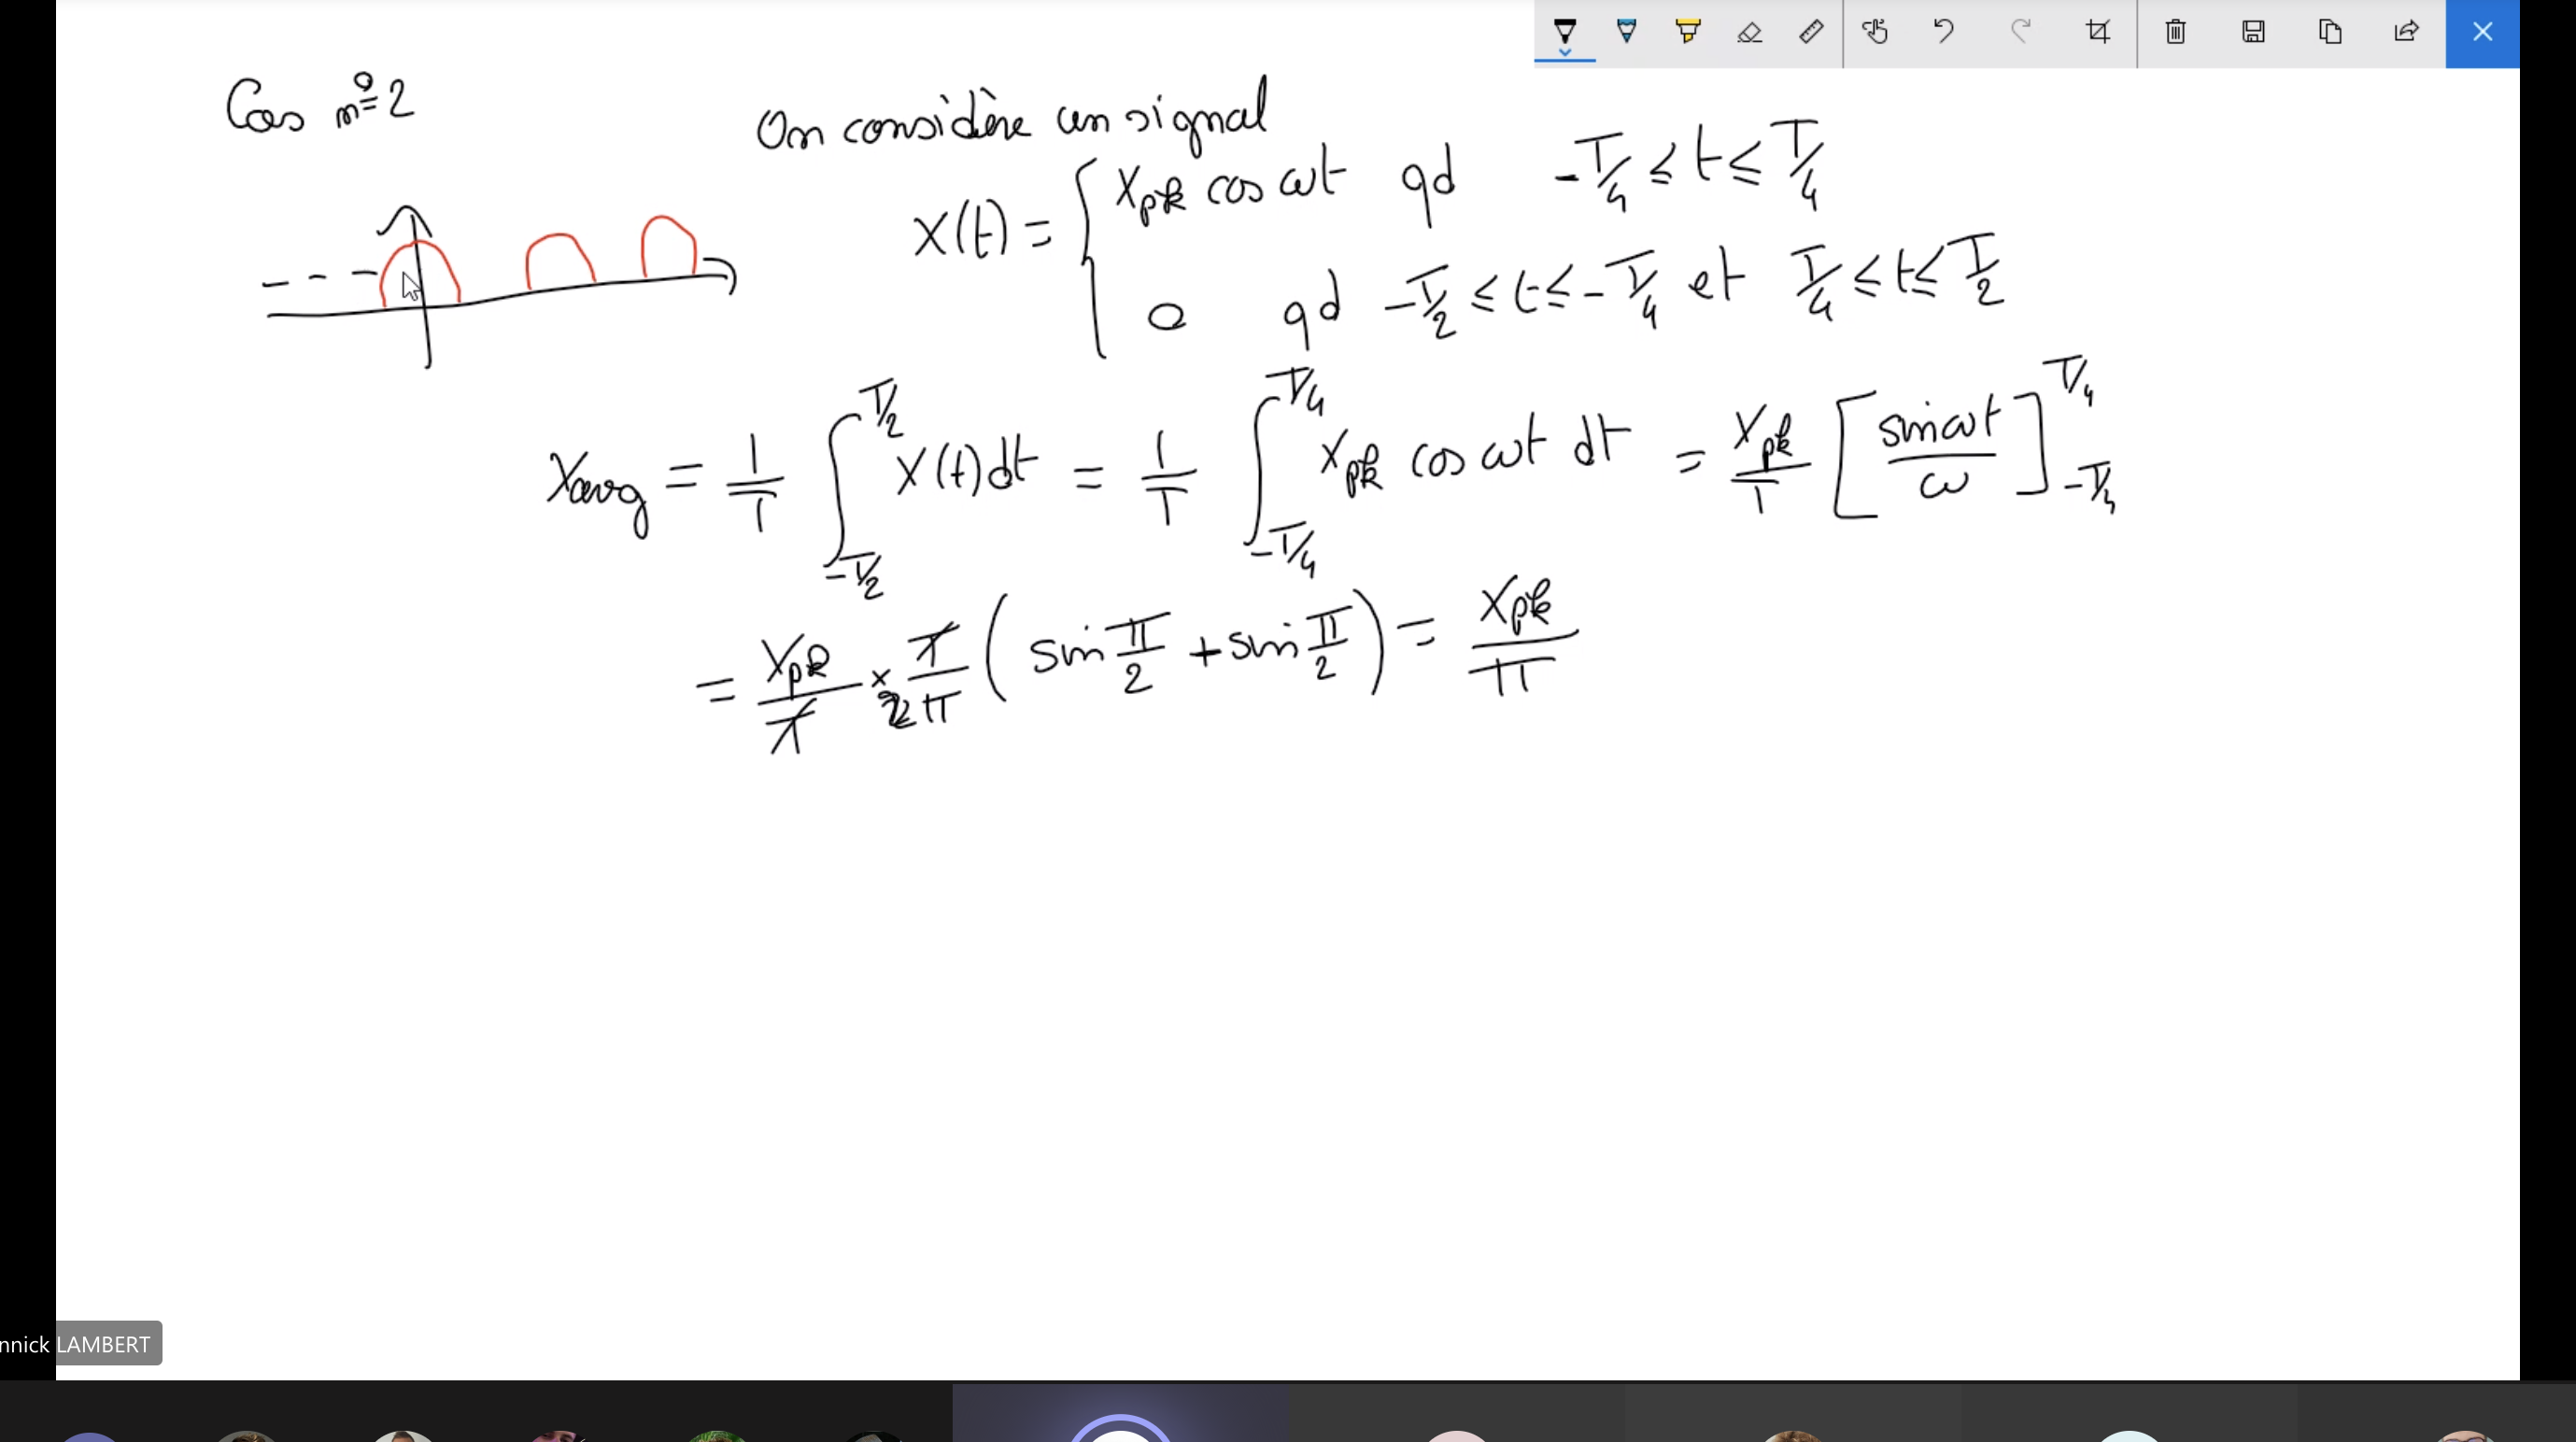 Cas n°2
On considère un signal
x(t) = { Xpk cos ωt qd -T/4 ≤ t ≤ T/4
0 qd -T/2 ≤ t ≤ -T/4 et T/4 ≤ t ≤ T/2
Xavg = 1/T ∫_{-T/2}^{T/2} x(t) dt = 1/T ∫_{-T/4}^{T/4} Xpk cos ωt dt = Xpk/T [sin ωt/ω]_{-T/4}^{T/4}
= Xpk/T × T/2π (sin π/2 + sin π/2) = Xpk/π
nnick LAMBERT